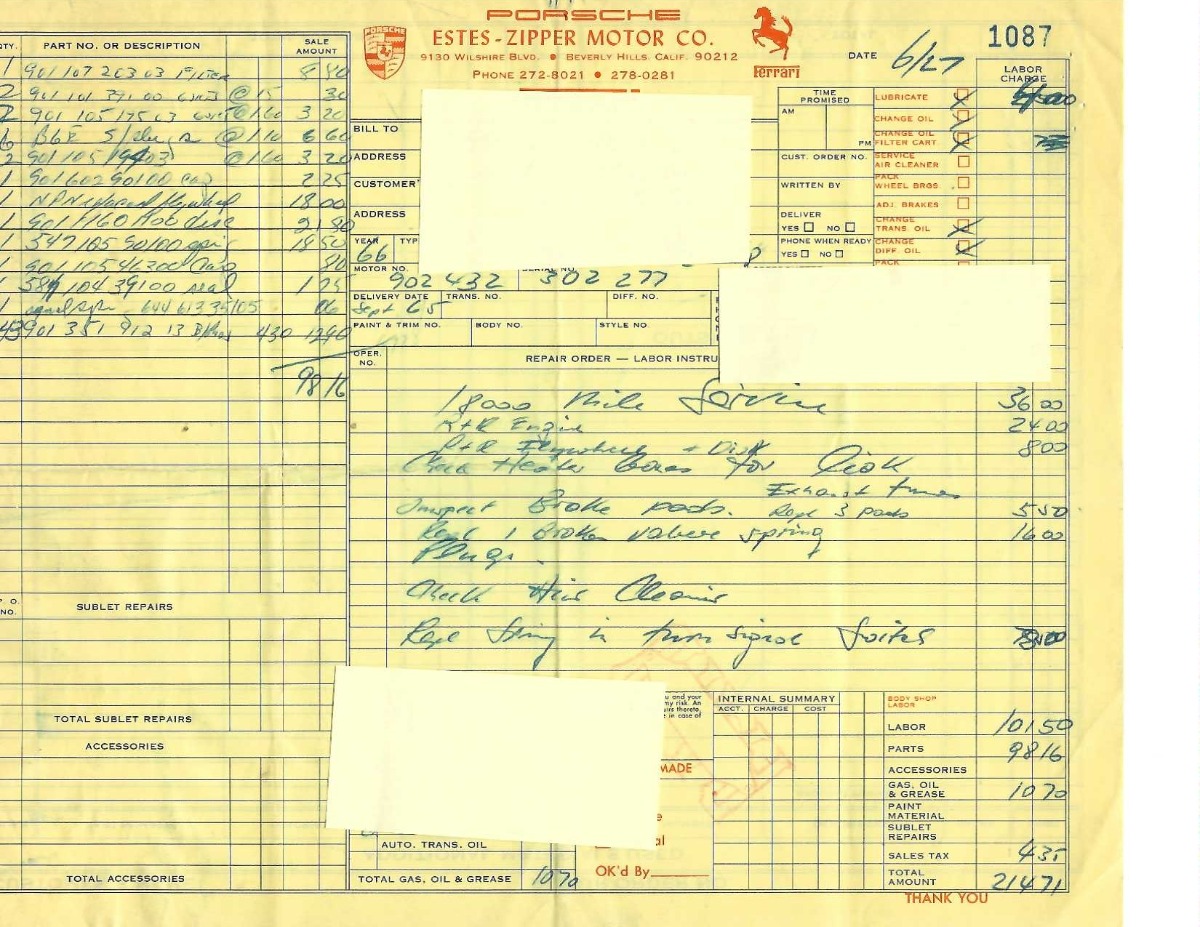 PORSCHE
ESTES-ZIPPER MOTOR CO.
9130 WILSHIRE BLVD. • BEVERLY HILLS, CALIF. 90212
PHONE 272-8021 • 278-0281
PORSCHE
Ferrari
DATE 6/27
1087
QTY. PART NO. OR DESCRIPTION SALE AMOUNT
1 901 107 203 03 FILTER 8 80
2 901 101 391 00 @ 15 30
2 901 105 175 03 @ 1.60 3 20
6 @ 1.10 6 60
2 901 105 @ 1.60 3 20
1 901 602 901 00 2 25
1 18 00
1 disc 21 80
1 547 105 901 00 19 50
1 901 105 80
1 104 391 00 seal 1 75
1 06
3 901 351 912 13 430 1290
98 16
P. O. NO. SUBLET REPAIRS
TOTAL SUBLET REPAIRS
ACCESSORIES
TOTAL ACCESSORIES
BILL TO
ADDRESS
CUSTOMER'
ADDRESS
YEAR 66 TYP
MOTOR NO. 902 432 302 277
DELIVERY DATE Sept 65 TRANS. NO. DIFF. NO.
PAINT & TRIM NO. BODY NO. STYLE NO.
TIME PROMISED
AM
PM
CUST. ORDER NO.
WRITTEN BY
DELIVER
YES NO
PHONE WHEN READY
YES NO
LABOR CHARGE
LUBRICATE
CHANGE OIL
CHANGE OIL FILTER CART.
SERVICE AIR CLEANER
PACK WHEEL BRGS.
ADJ. BRAKES
CHANGE TRANS OIL
CHANGE DIFF. OIL
PACK
OPER. NO. REPAIR ORDER — LABOR INSTRU
18000 Mile Service 36 00
R+R Engine 24 00
R+R Flywheel + Disk 8 00
Check Heater boxes for
Exhaust
Inspect Brake pads. Repl 3 pads 5 50
Repl 1 Broken valve spring 16 00
Plugs.
Check Air Cleaner
Repl Spring in turn signal
u and your
my risk. An
irs thereto,
e in case of
MADE
AUTO. TRANS. OIL
TOTAL GAS, OIL & GREASE 10 70
OK'd By
INTERNAL SUMMARY
ACCT. CHARGE COST
BODY SHOP LABOR
LABOR 101 50
PARTS 98 16
ACCESSORIES
GAS, OIL & GREASE 10 70
PAINT MATERIAL
SUBLET REPAIRS
SALES TAX 4 35
TOTAL AMOUNT 214 71
THANK YOU